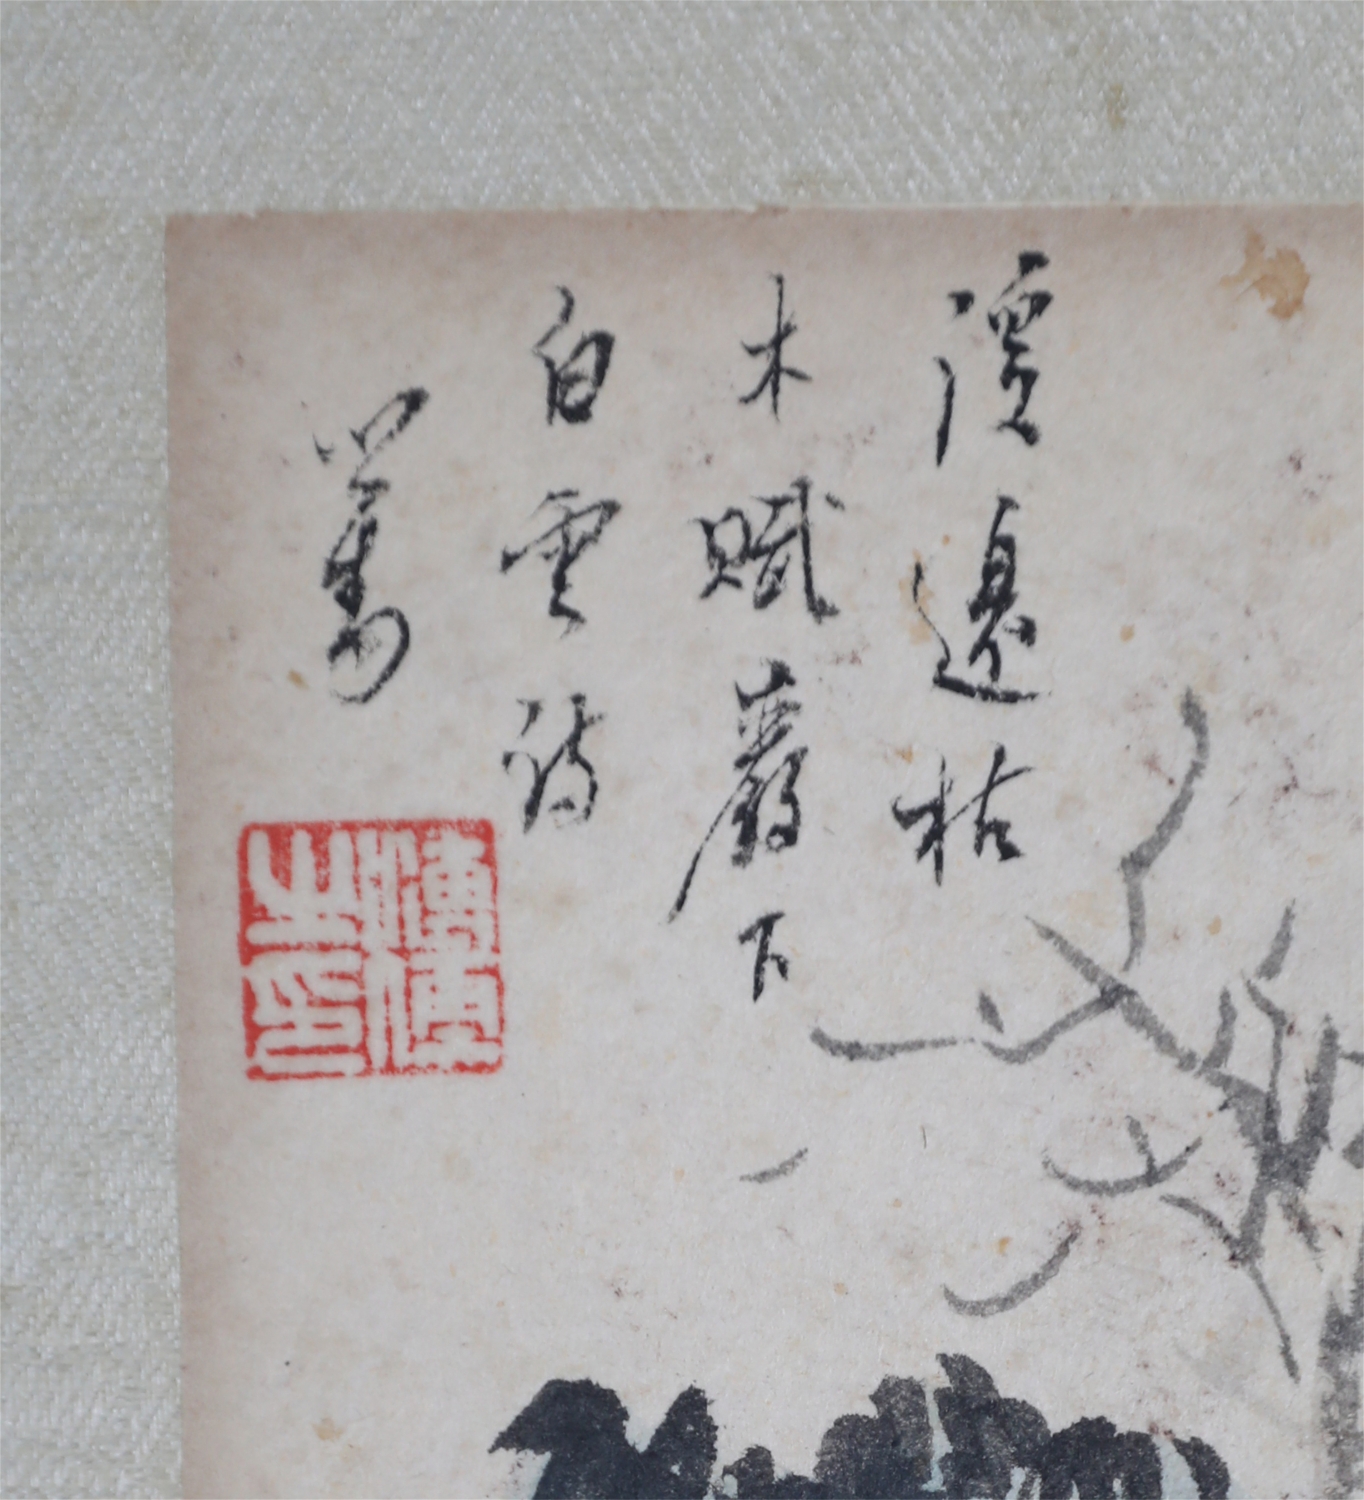 潭邊枯
木賦巖下
白雲詩
溥
之印